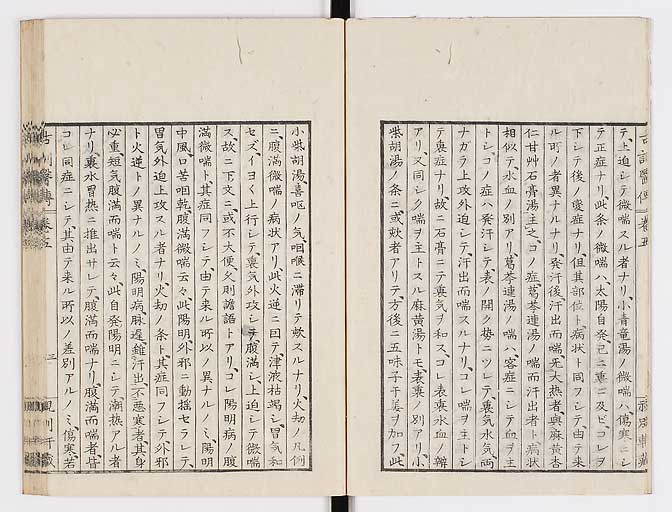 テ、上迫シテ微喘スル者ナリ、小青竜湯ノ微喘ハ傷寒ニシ
テ正症ナリ、此条ノ微喘ハ太陽自発已ニ裏ニ及ビ、コレヲ
下シテ後ノ変症ナリ、但其部位ト病状ト同フシテ、由テ来
ル所ノ者異ナルナリ、発汗後、汗出而喘、無大熱者、與麻黄杏
仁甘艸石膏湯主之、コノ症、葛芩連湯ノ喘而汗出者ト病状
相似テ、水血ノ別アリ、葛芩連湯ノ喘ハ客症ニシテ血ヲ主
トシ、コノ症ハ発汗シテ、表ノ開ク勢ニツレテ、裏気水気両
ナガラ上攻外迫シテ、汗出而喘スルナリ、コレ喘ヲ主トシ
テ裏症ナリ、故ニ石膏ニテ裏気ヲ和ス、コレ表裏水血ノ辨
アリ、又同シク喘ヲ主トスル麻黄湯トモ、表裏ノ別アリ、小
柴胡湯ノ条ニ、或欬者アリテ、方後ニ五味子干姜ヲ加フ、此
小柴胡湯喜嘔ノ気、咽喉ニ滞リテ欬スルナリ、火劫ノ凡例
ニ、腹満微喘ノ病状アリ、此火逆ニ因テ、津液枯竭シ、冒気和
セズ、イヨく上行シテ、裏気外攻シテ腹満シ、上迫シテ微喘
ス、故ニ下文ニ、或不大便、久則譫語トアリ、コレ陽明病ノ腹
満微喘ト、其症同フシテ、由テ来ル所以ノ異ナルノミ、陽明
中風、口苦咽乾、腹満微喘云々、此陽明外邪ニ動揺セラレテ、
冒気外迫上攻スル者ナリ、火劫ノ条ト其症同フシテ、外邪
ト火逆トノ異ナルノミ、陽明病、脉遅、雖汗出、不悪寒者、其身
必重、短気腹満而喘ト云々、此自発陽明ニシテ、潮熱アル者
ナリ、裏水冒熱ニ推出サレテ、腹満而喘ナリ、腹満而喘者、皆
コレ同症ニシテ、其由テ来ル所以ノ差別アルノミ、傷寒若
巻五
三